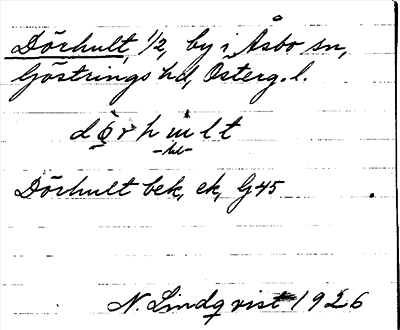 Dörhult, 1/2, by i Åsbo sn,
Göstrings hd, Österg. l.
dörhult
-hu-
Dörhult bek, ek, G45
N. Lindqvist 1926